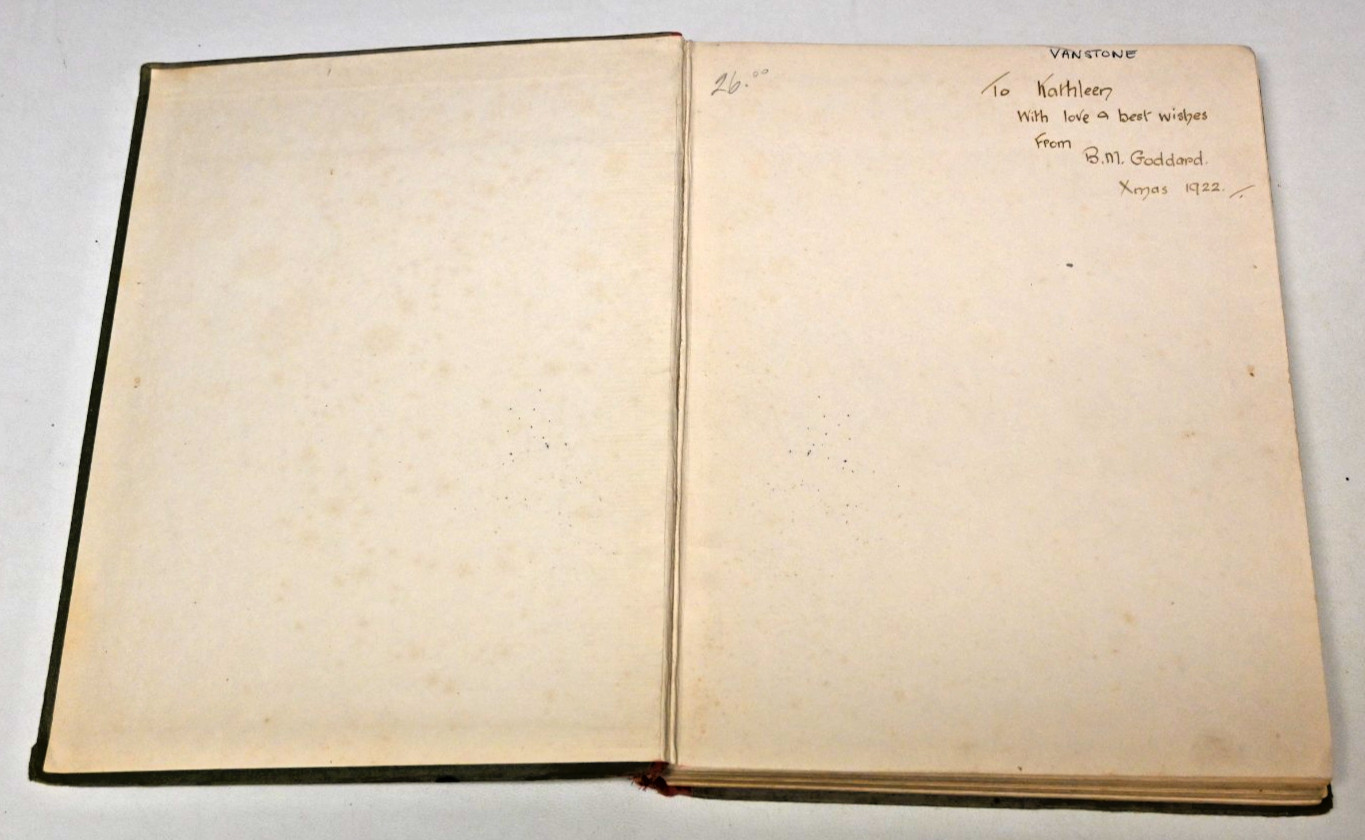 VANSTONE
26.00
To Kathleen
With love & best wishes
From
B.M. Goddard.
Xmas 1922.